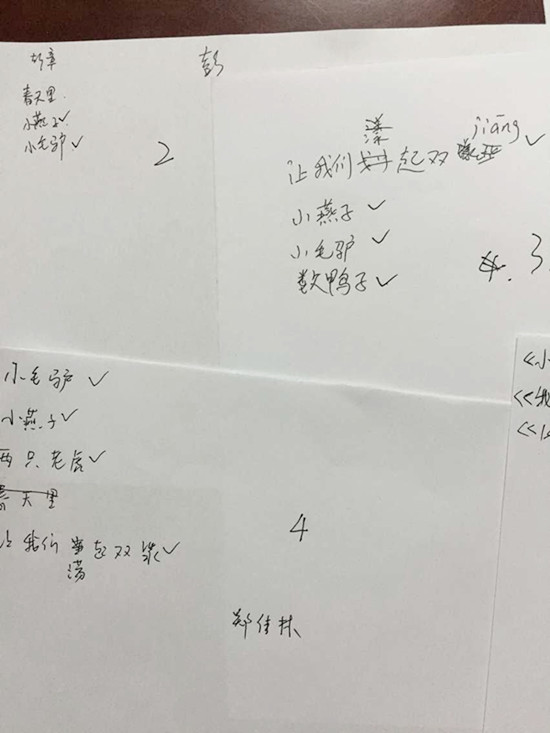 彭
春天里
小燕子✓
小毛驴✓
2
jiāng
让我们 起双 ✓
小燕子✓
小毛驴✓
数鸭子✓
3.
小毛驴✓
小燕子✓
两只老虎✓
春天里
让我们 起双 ✓
荡
4
郑佳林
《小
《我